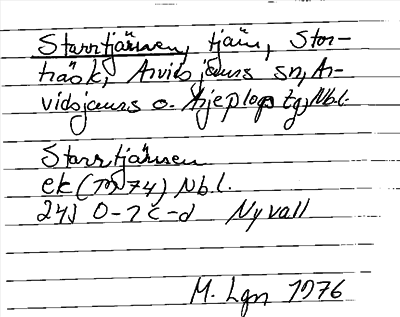 Starrtjärnen, tjärn, Stor-
träsk, Arvidsjaurs sn, Ar-
vidsjaurs o. Arjeplogs tg, Nb.l.
Starrtjärnen
ek (1974) Nb.l.
24J 0-1 c-d Nyvall
M. Lgn 1976